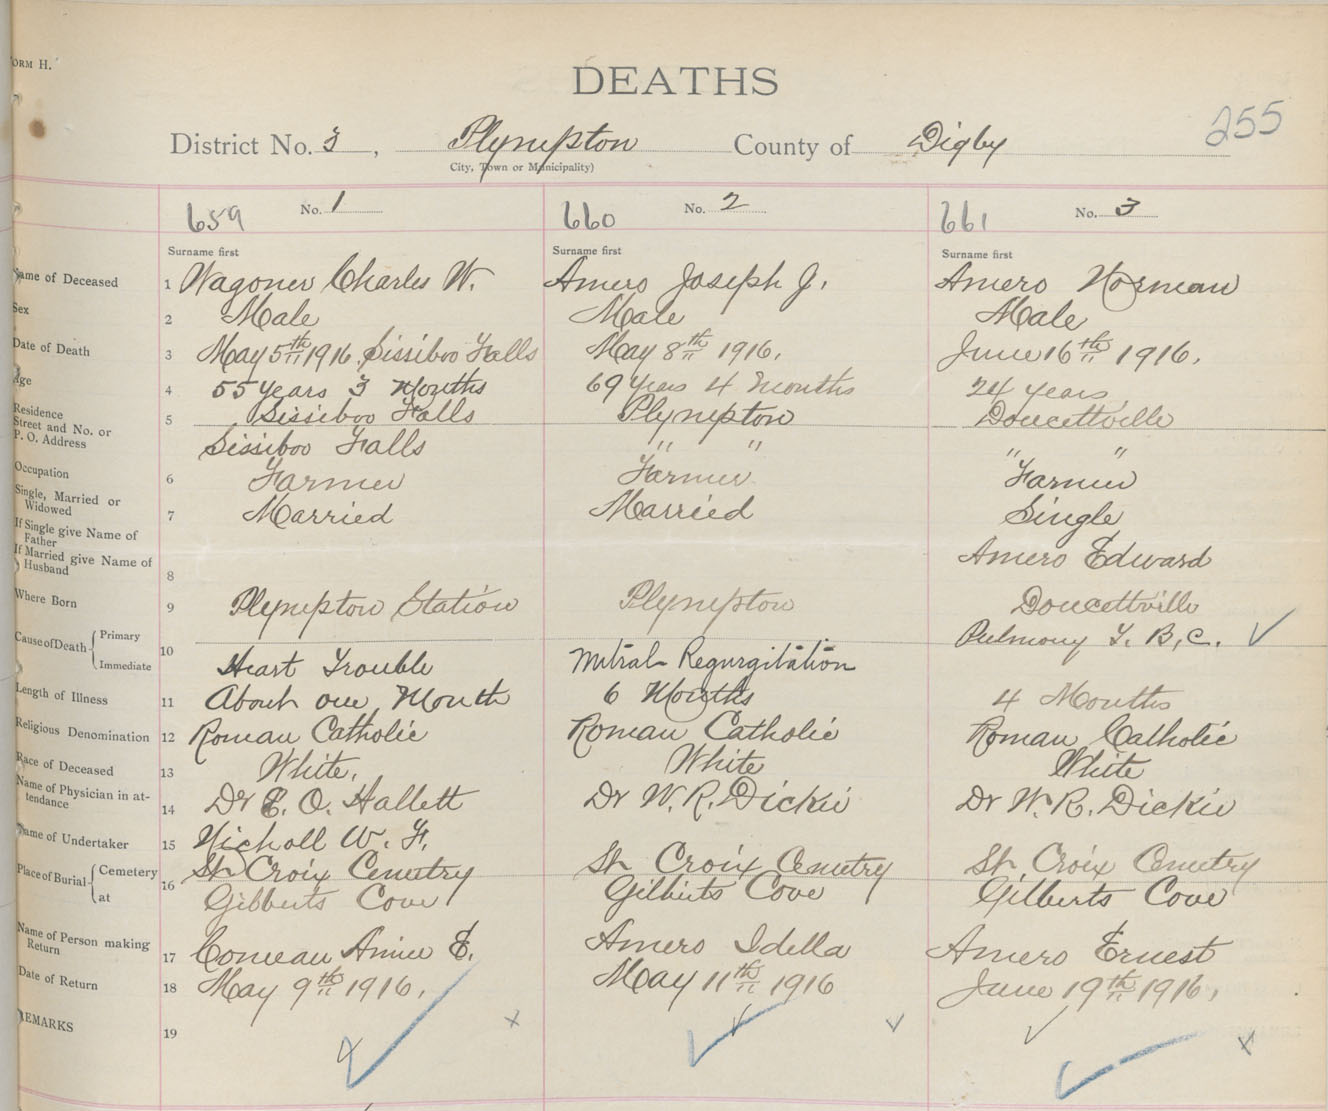 ORM H.
DEATHS
255
District No. 3, Plympton County of Digby
City, Town or Municipality)
659 No. 1 660 No. 2 661 No. 3
Surname first Surname first Surname first
Name of Deceased 1 Wagoner Charles W. Amero Joseph J. Amero Norman
Sex 2 Male Male Male
Date of Death 3 May 5th 1916 Sissiboo Falls May 8th 1916. June 16th 1916.
Age 4 55 years 3 Months 69 years 4 months 24 years
Residence Sissiboo Falls Plympton Doucettville
Street and No. or 5
P. O. Address Sissiboo Falls " " " "
Occupation 6 Farmer Farmer Farmer
Single, Married or 7 Married Married Single
Widowed
If Single give Name of
Father
If Married give Name of Amero Edward
Husband 8
Where Born 9 Plympton Station Plympton Doucettville
Cause of Death Primary Pulmony T. B. C.
10
Immediate Heart Trouble Mitral Regurgitation
Length of Illness 11 About one Month 6 Months 4 Months
Religious Denomination 12 Roman Catholic Roman Catholic Roman Catholic
Race of Deceased 13 White. White White
Name of Physician in at- 14 Dr E. O. Hallett Dr W. R. Dickie Dr W. R. Dickie
tendance
Name of Undertaker 15 Nicholl W. F.
Place of Burial Cemetery St Croix Cemetry St Croix Cemetry St Croix Cemetry
16
at Gilberts Cove Gilberts Cove Gilberts Cove
Name of Person making 17 Comeau Annie E. Amero Idella Amero Ernest
Return
Date of Return 18 May 9th 1916. May 11th 1916 June 19th 1916.
REMARKS 19